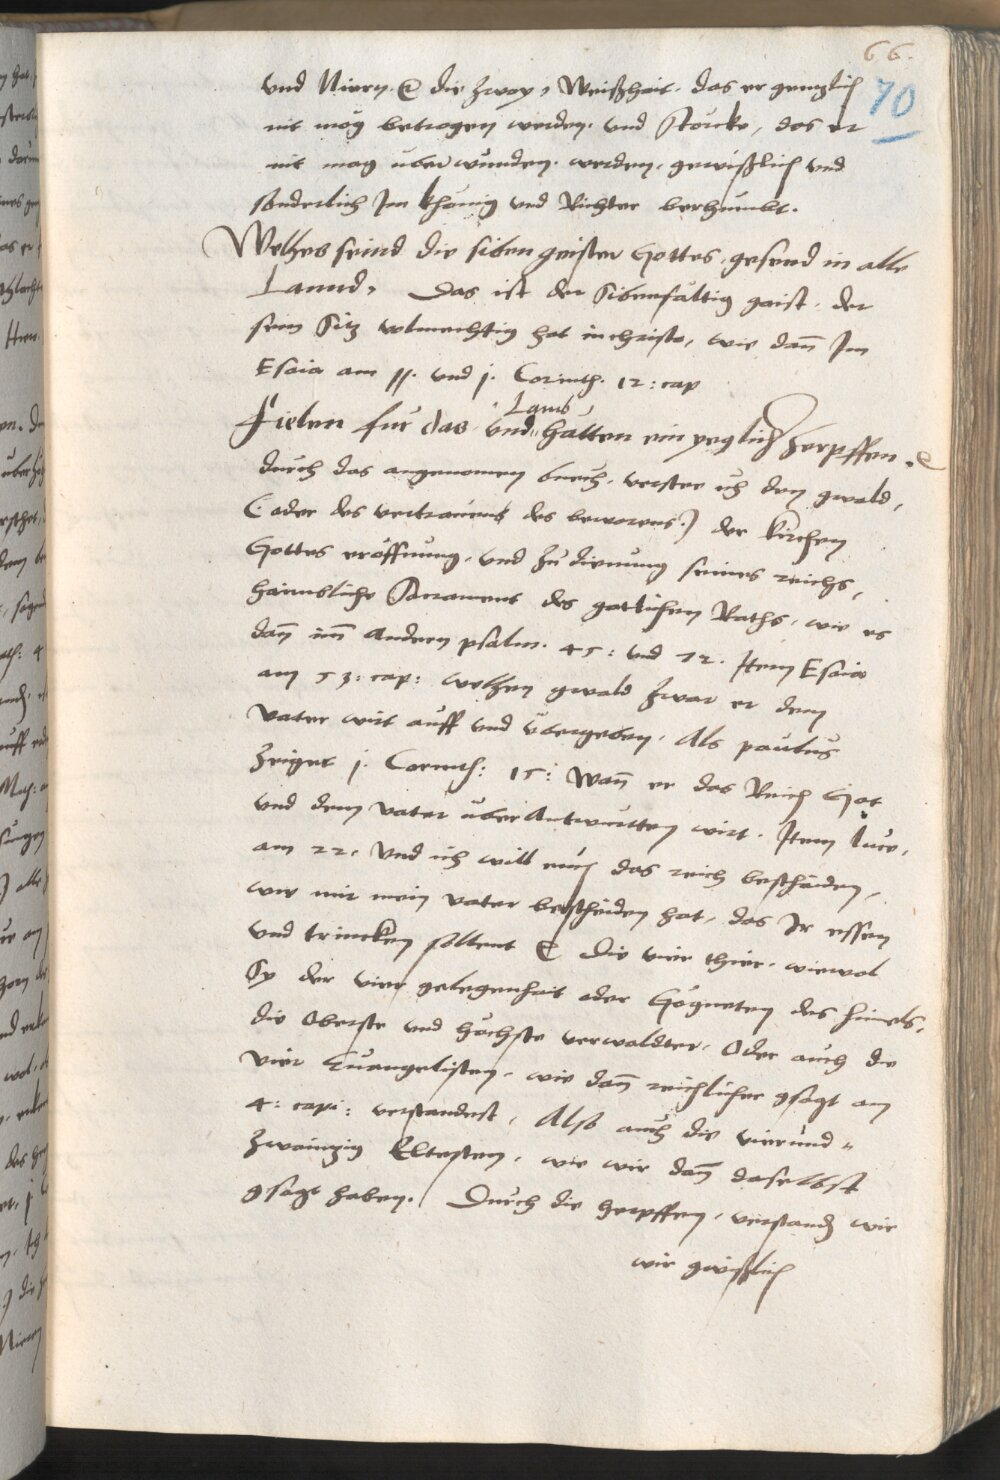 66.
70
vnd Niern. &c die zway, Weißhait. das er gentzlich
nit mög betrogen werden. vnd Stercke, das er
nit mag vberwunden. werden. gewißlich vnd
sonderlich Im khünig vnd Richter berhümbt.
Welhes seind die siben geister Gottes, gesend in alle
Lannd, Das ist der Sibenfaltig gaist. der
sein Sitz volmechtig hat in christo, wie dan̄ Im
Esaia am 11. vnd j. Corinth. 12: cap
Lamb
Fielen für das vnd hatten ein yeglich herpffen. &c
durch das angenomen buech. verstee ich den gwald,
(oder des vertrauens des beworens) der kirchen
Gottes eröffnung, vnd zu dienung seines reichs,
haimbsliche Sacrament des gotlichen Raths. wie es
dan̄ im̄ Andern psalm. 45: vnd 72. Item Esaia
am 53: cap: welhen gwald zwar er dem
vater wirt auff vnd vbergeben. Als paulus
zeiget j. Corinth: 15: Wan̄ er das Reich Got
vnd dem vater vberAntwurtten wirt. Item luce,
am 22. vnd ich will euch das reich beschaiden,
wie mir mein vater beschaiden hat, das Ir essen
vnd trincken soltent &c Die vier thier. wiewol
Sy der vier gelegenhait oder Gögneten des himels,
die Oberste vnd höchste verwaldter. Oder auch die
vier Euangelisten. wie dan̄ reichlicher gsagt am
4: capi: verstandest, Also auch die vierund-
zwaintzig Eltesten. wie wir dan̄ daselbst
gsagt haben. Durch die herpffen, verstand wie
wir gwißlich